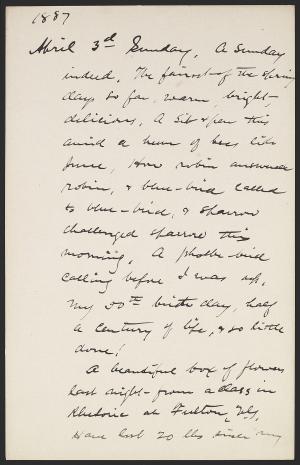 1887
April 3rd Sunday. A Sunday
indeed. The fairest of the spring
days so far, warm, bright,
delicious. As I sit & pen this
amid a hum of bees like
June. How robin answered
robin, & blue-bird called
to blue-bird, & sparrow
challenged sparrow this
morning. A phoebe-bird
calling before I was up.
My 50th birth day, half
a century of life, & so little
done!
A beautiful box of flowers
last night from a class in
Rhetoric at Fulton, N.Y.
Have lost 20 lbs since my